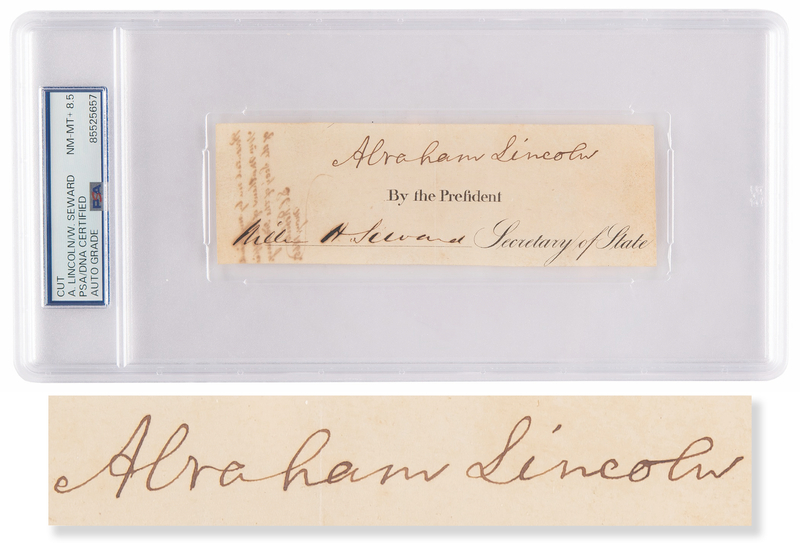 CUT
A. LINCOLN/W. SEWARD NM-MT+ 8.5
PSA/DNA CERTIFIED
AUTO GRADE PSA 85525657
Abraham Lincoln
By the Preſident
William H. Seward Secretary of State
Abraham Lincoln